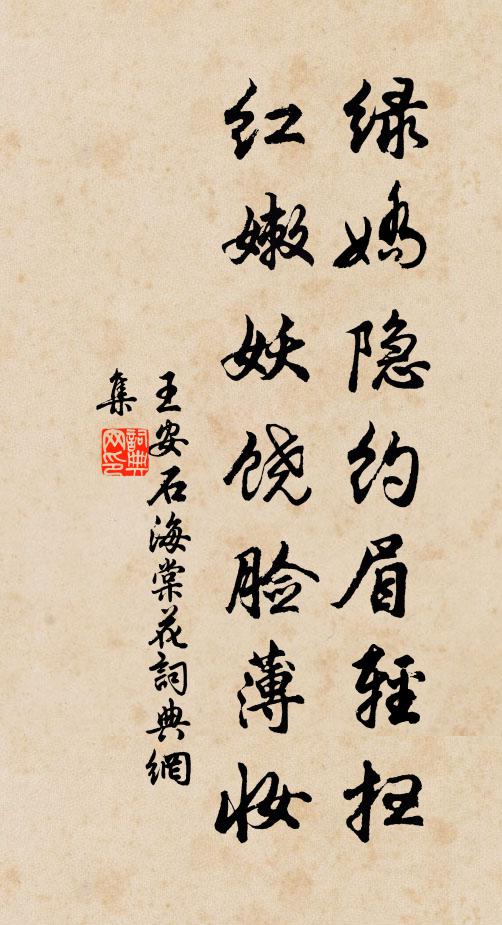 绿娇隐约眉轻扫
红嫩妖饶脸薄妆
王安石海棠花詞典網
集
詞典网印